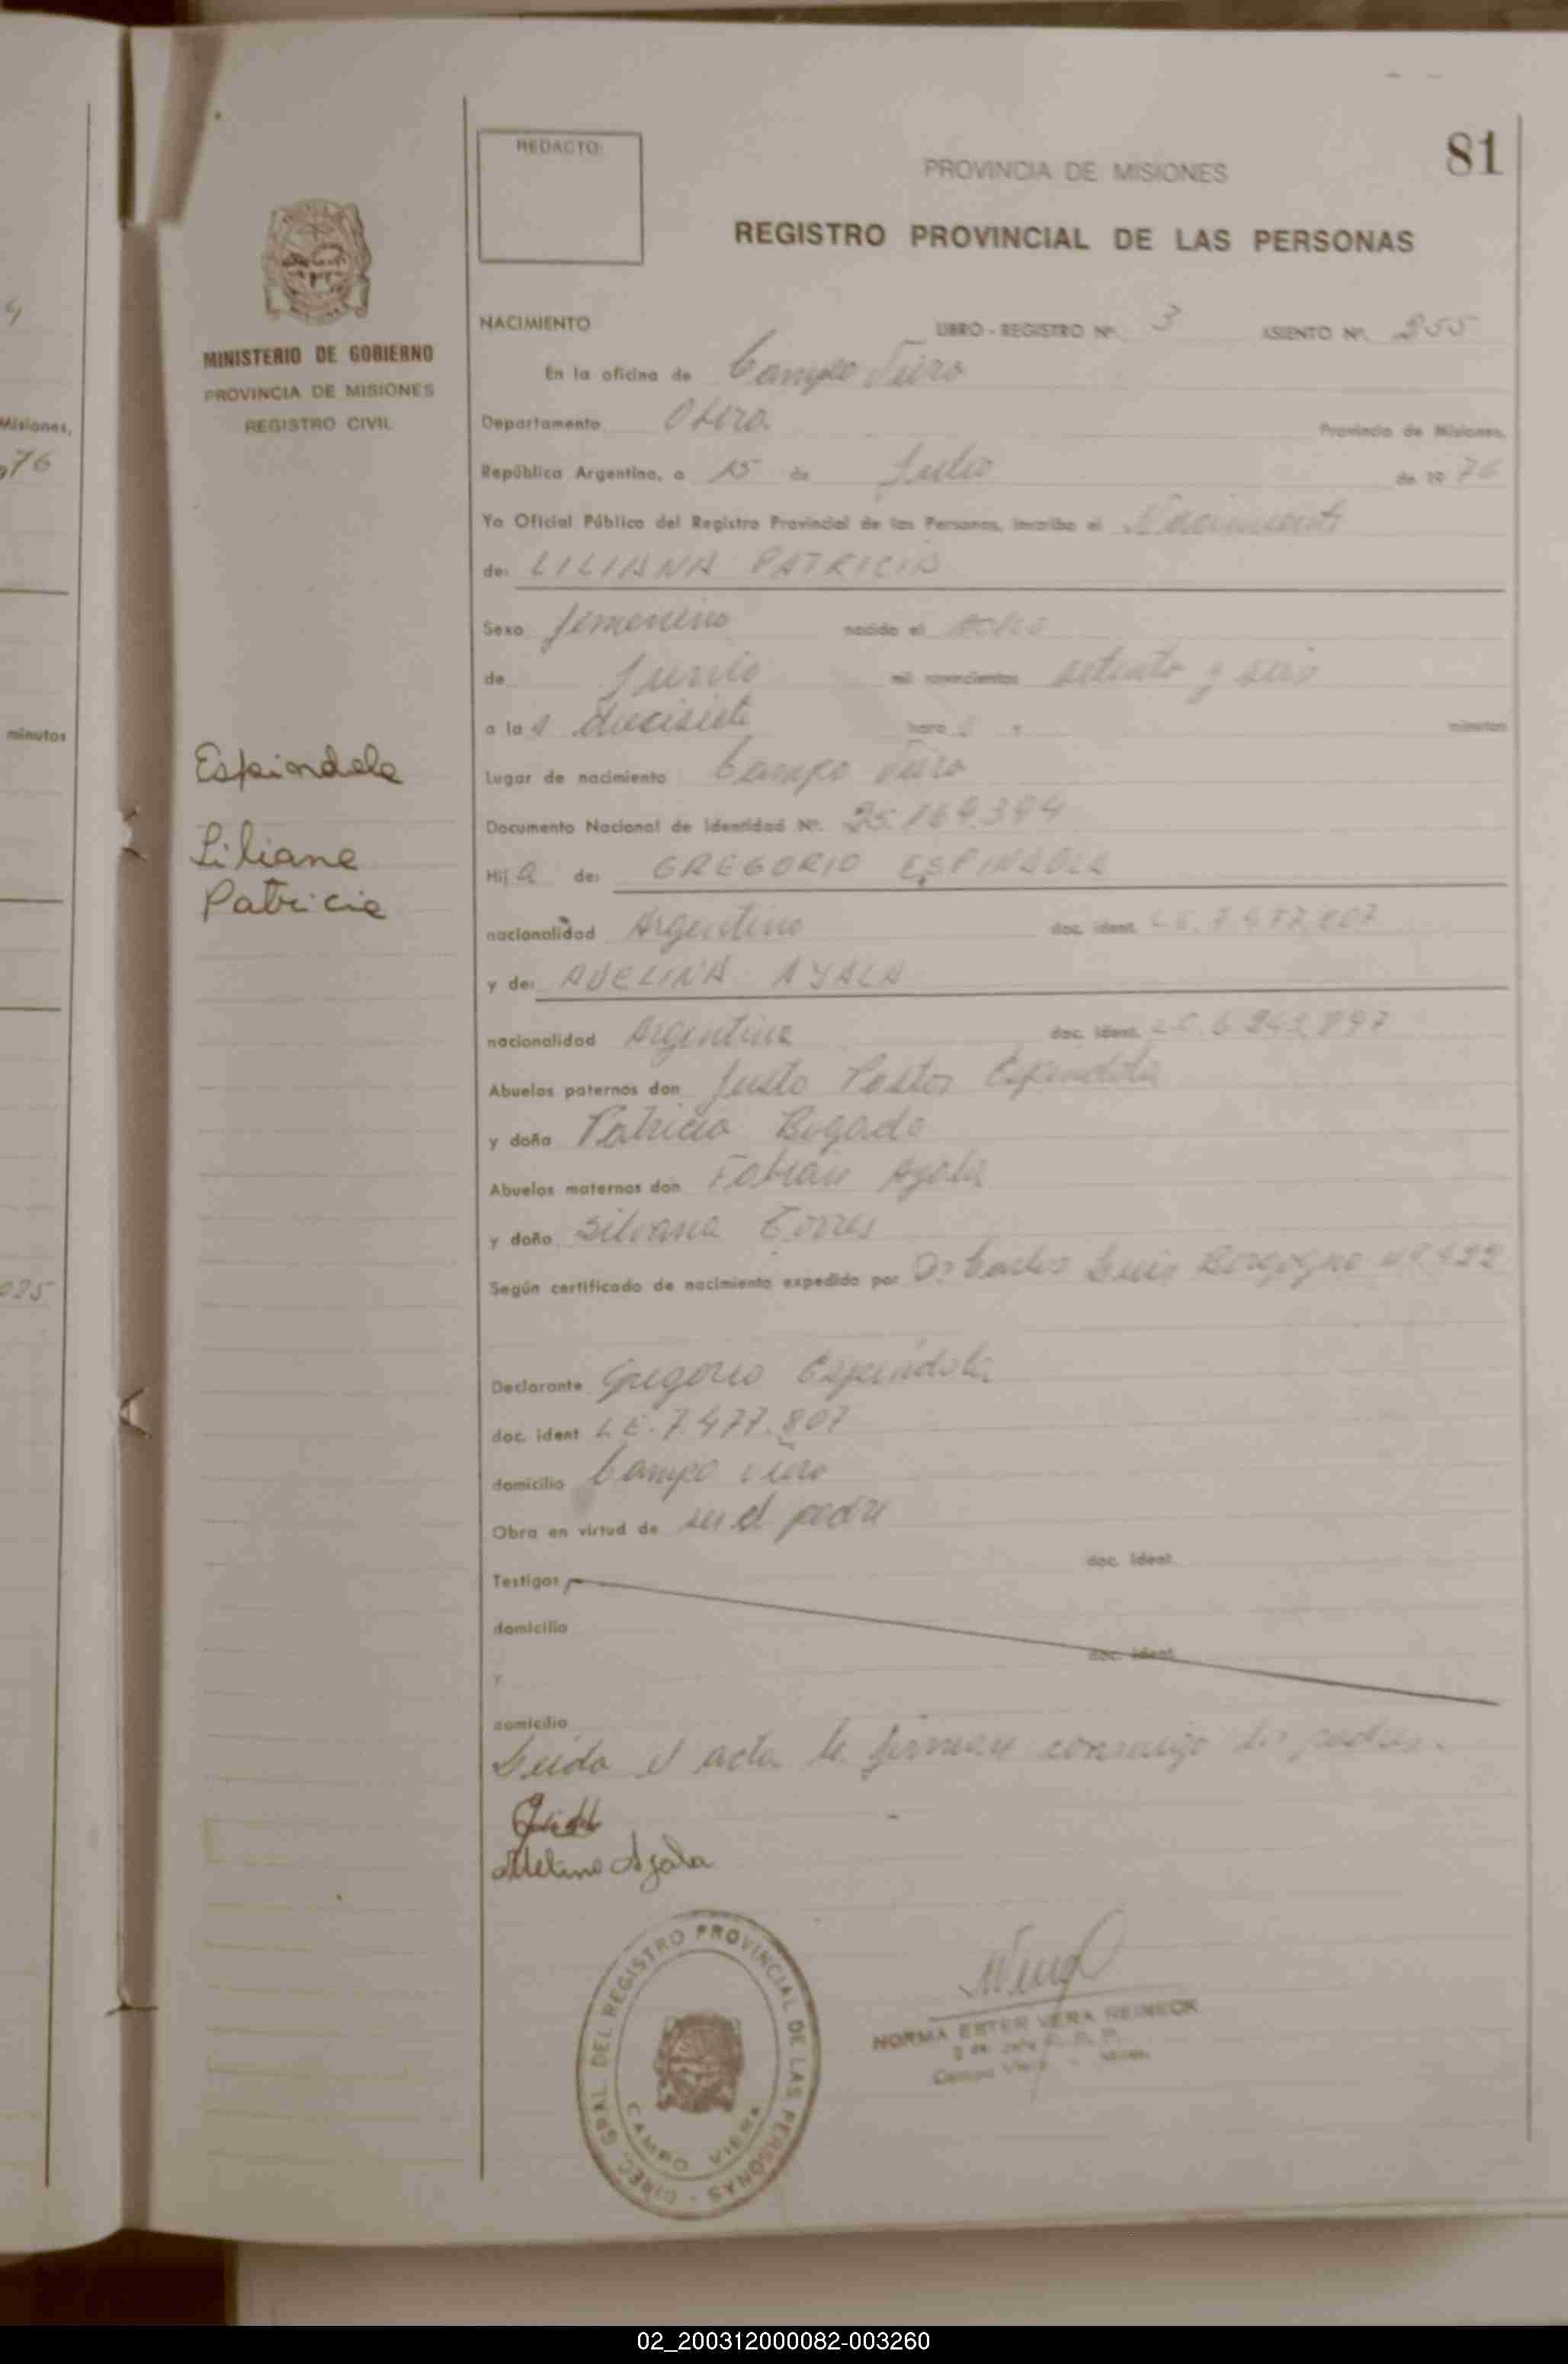 REDACTO:
81
PROVINCIA DE MISIONES
REGISTRO PROVINCIAL DE LAS PERSONAS
MINISTERIO DE GOBIERNO
PROVINCIA DE MISIONES
REGISTRO CIVIL
Misiones,
76
minutos
025
Espindola
Liliana
Patricia
NACIMIENTO LIBRO - REGISTRO Nº. 3 ASIENTO Nº. 255
En la oficina de Campo Viera
Departamento Oberá Provincia de Misiones,
República Argentina, a 15 de Julio de 19 76
Yo Oficial Público del Registro Provincial de las Personas, inscribo el Nacimiento
de: LILIANA PATRICIA
Sexo femenino nacido el ocho
de Junio mil novecientos setenta y seis
a la s diecisiete hora s y minutos
Lugar de nacimiento Campo Viera
Documento Nacional de Identidad Nº. 25.169.394
Hij a de: GREGORIO ESPINDOLA
nacionalidad Argentino doc. ident. L E. 7.477.807
y de: ADELINA AYALA
nacionalidad Argentina doc. ident. L C. 6.243.897
Abuelos paternos don Justo Pastor Espindola
y doña Patricia Bogado
Abuelos maternos don Fabian Ayala
y doña Silvana Torres
Según certificado de nacimiento expedido por Dr Carlos Luis Borgogno nº 422
Declarante Gregorio Espindola
doc. ident L E. 7.477.807
domicilio Campo Viera
Obra en virtud de ser el padre
doc. ident.
Testigos
domicilio
doc. ident.
y
domicilio
Leida el acta la firman conmigo los padres.
Adelina Ayala
DIREC. GRAL. DEL REGISTRO PROVINCIAL DE LAS PERSONAS
CAMPO VIERA
NORMA ESTER VERA REINECK
Campo Viera
02_200312000082-003260